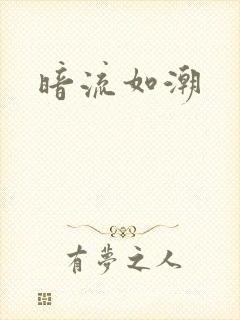 暗流如潮
有夢之人